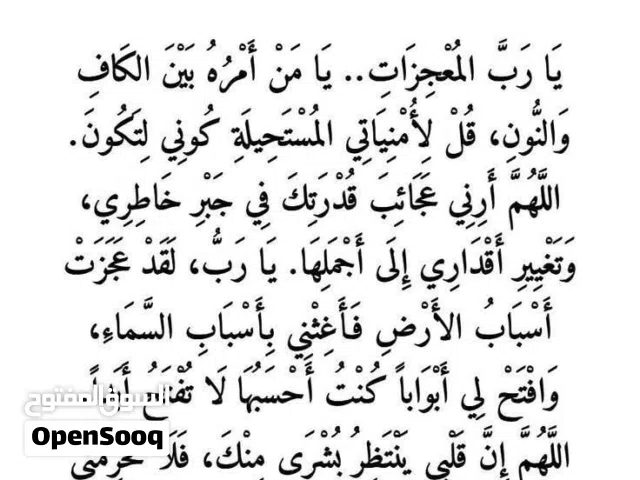 يَا رَبَّ المُعْجِزَاتِ.. يَا مَنْ أَمْرُهُ بَيْنَ الكَافِ
وَالنُّونِ، قُلْ لِأُمْنِيَاتِي المُسْتَحِيلَةِ كُونِي لِتَكُونَ.
اللَّهُمَّ أَرِنِي عَجَائِبَ قُدْرَتِكَ فِي جَبْرِ خَاطِرِي،
وَتَغْيِيرِ أَقْدَارِي إِلَى أَجْمَلِهَا. يَا رَبُّ، لَقَدْ عَجَزَتْ
أَسْبَابُ الأَرْضِ فَأَغِثْنِي بِأَسْبَابِ السَّمَاءِ،
وَافْتَحْ لِي أَبْوَاباً كُنْتُ أَحْسَبُهَا لَا تُفْتَحُ أَبَداً
السوق المفتوح
OpenSooq
اللَّهُمَّ إِنَّ قَلْبِي يَنْتَظِرُ بُشْرَى مِنْكَ، فَلَا